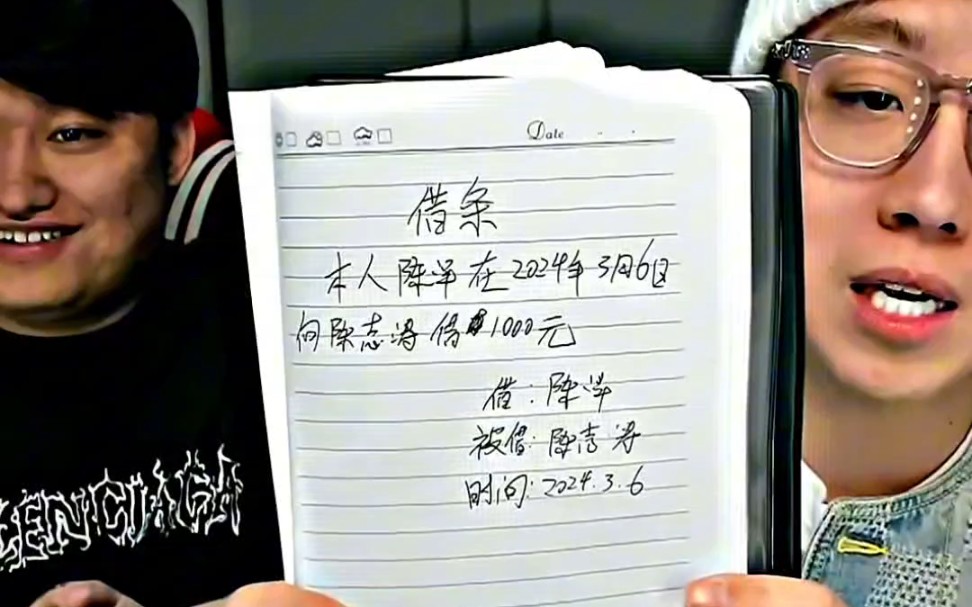 Date
借条
本人陈泽在2024年3月6日
向陈志涛借1000元
借：陈泽
被借：陈志涛
时间：2024.3.6
LENCIAGA